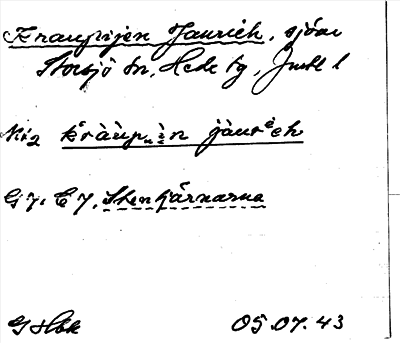 Kraupijen Jaurieh, sjöar
Storsjö sn, Hede tg, Jmtl l
Nr2 kràùp..ìn jàurech
G 7. E 7, Stentjärnarna
G Hbk 05.07.43